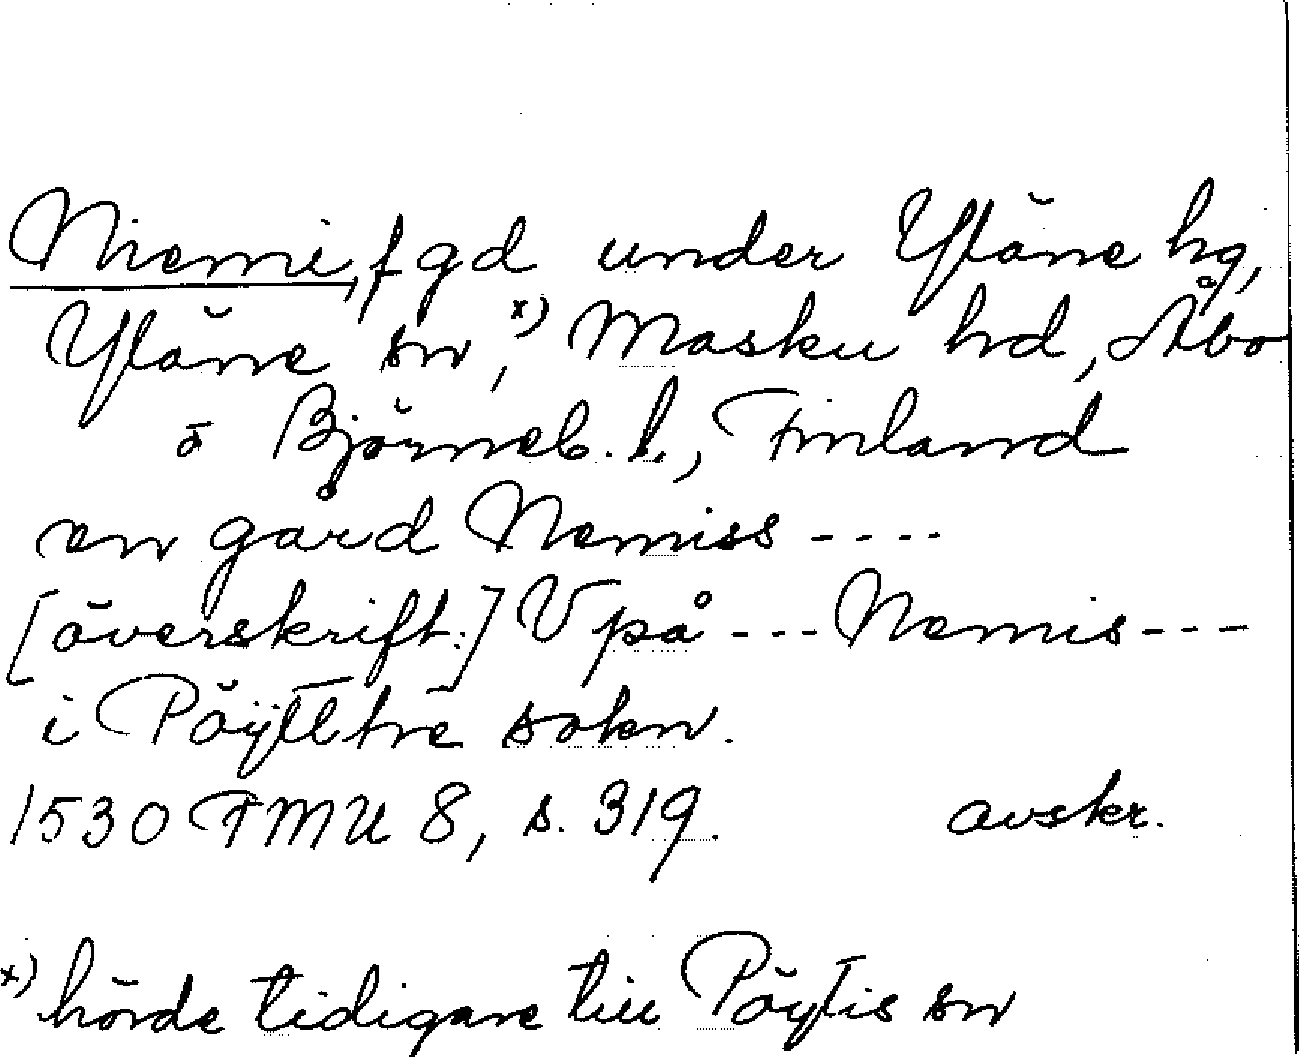 Niemi, f gd under Yläne hg,
Yläne sn,x) Masku hd, Åbo
o Björneb. l., Finland
en gård Nemiss ----
[överskift:] V på --- Nemis ---
i Pöÿtthre sokn.
1530 FMU 8, s. 319. avskr.
x) hörde tidigare till Pöytis sn